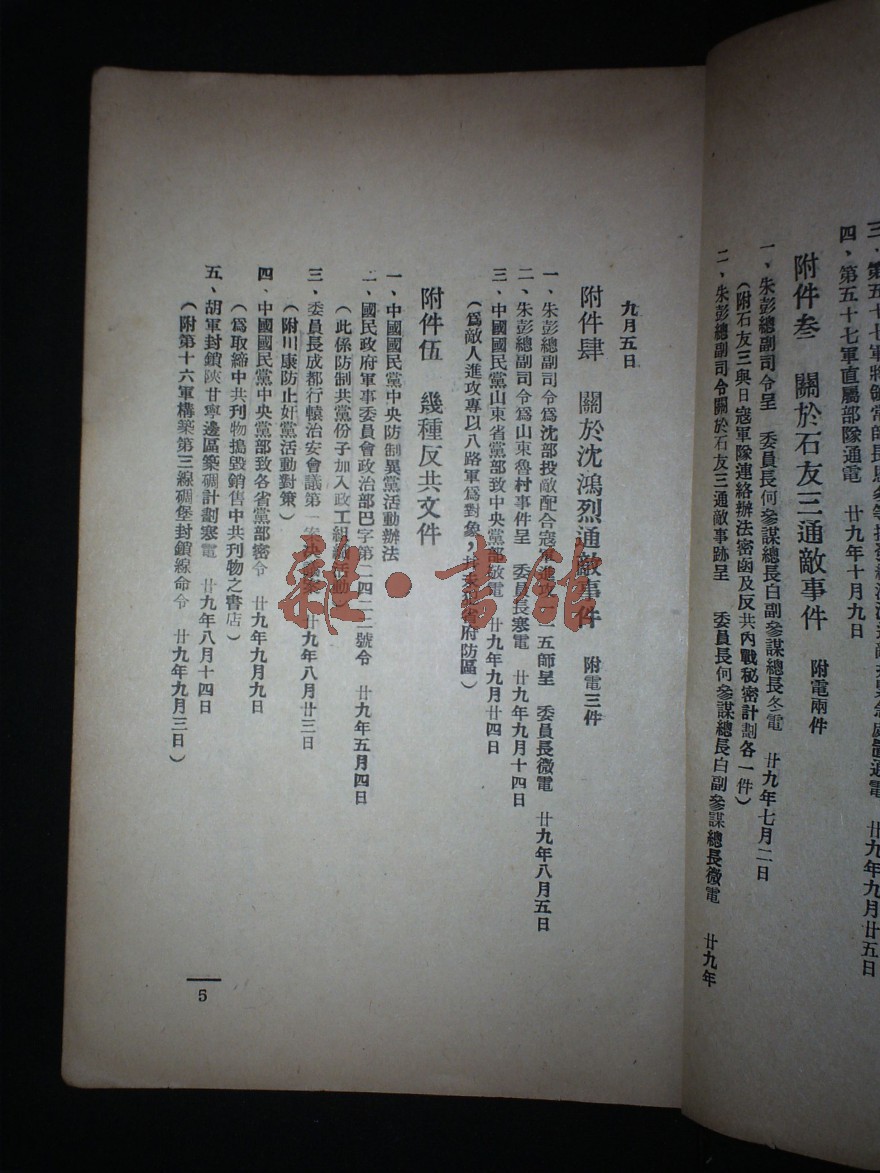 四、第五十七軍直屬部隊通電　廿九年十月九日
附件叁　關於石友三通敵事件　附電兩件
一、朱彭總副司令呈　委員長何參謀總長白副參謀總長冬電　廿九年七月二日
（附石友三與日寇軍隊連絡辦法密函及反共內戰秘密計劃各一件）
二、朱彭總副司令關於石友三通敵事跡呈　委員長何參謀總長白副參謀總長微電　廿九年
九月五日
附件肆　關於沈鴻烈通敵事件　附電三件
一、朱彭總副司令爲沈部投敵配合寇軍進攻一一五師呈　委員長微電　廿九年八月五日
二、朱彭總副司令爲山東魯村事件呈　委員長寒電　廿九年九月十四日
三、中國國民黨山東省黨部致中央黨部敬電　廿九年九月廿四日
（爲敵人進攻專以八路軍爲對象，省府防區）
附件伍　幾種反共文件
一、中國國民黨中央防制異黨活動辦法
二、國民政府軍事委員會政治部巴字第二四二二號令　廿九年五月四日
（此係防制共黨份子加入政工組織活動）
三、委員長成都行轅治安會議第　案　廿九年八月廿三日
（附川康防止奸黨活動對策）
四、中國國民黨中央黨部致各省黨部密令　廿九年九月九日
（爲取締中共刊物搗毀銷售中共刊物之書店）
五、胡軍封鎖陝甘寧邊區築碉計劃寒電　廿九年八月十四日
（附第十六軍構築第三線碉堡封鎖線命令　廿九年九月三日）
5
雜·書館